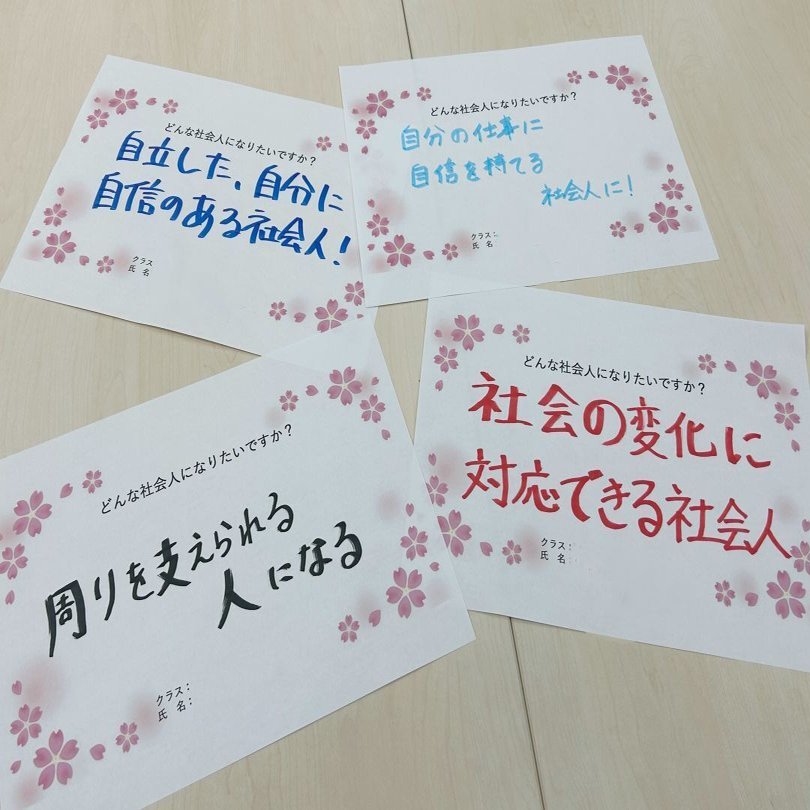 どんな社会人になりたいですか？
自立した、自分に
自信のある社会人！
クラス
氏 名
どんな社会人になりたいですか？
自分の仕事に
自信を持てる
社会人に！
クラス：
氏 名
どんな社会人になりたいですか？
周りを支えられる
人になる
クラス：
氏 名：
どんな社会人になりたいですか？
社会の変化に
対応できる社会人
クラス：
氏 名：